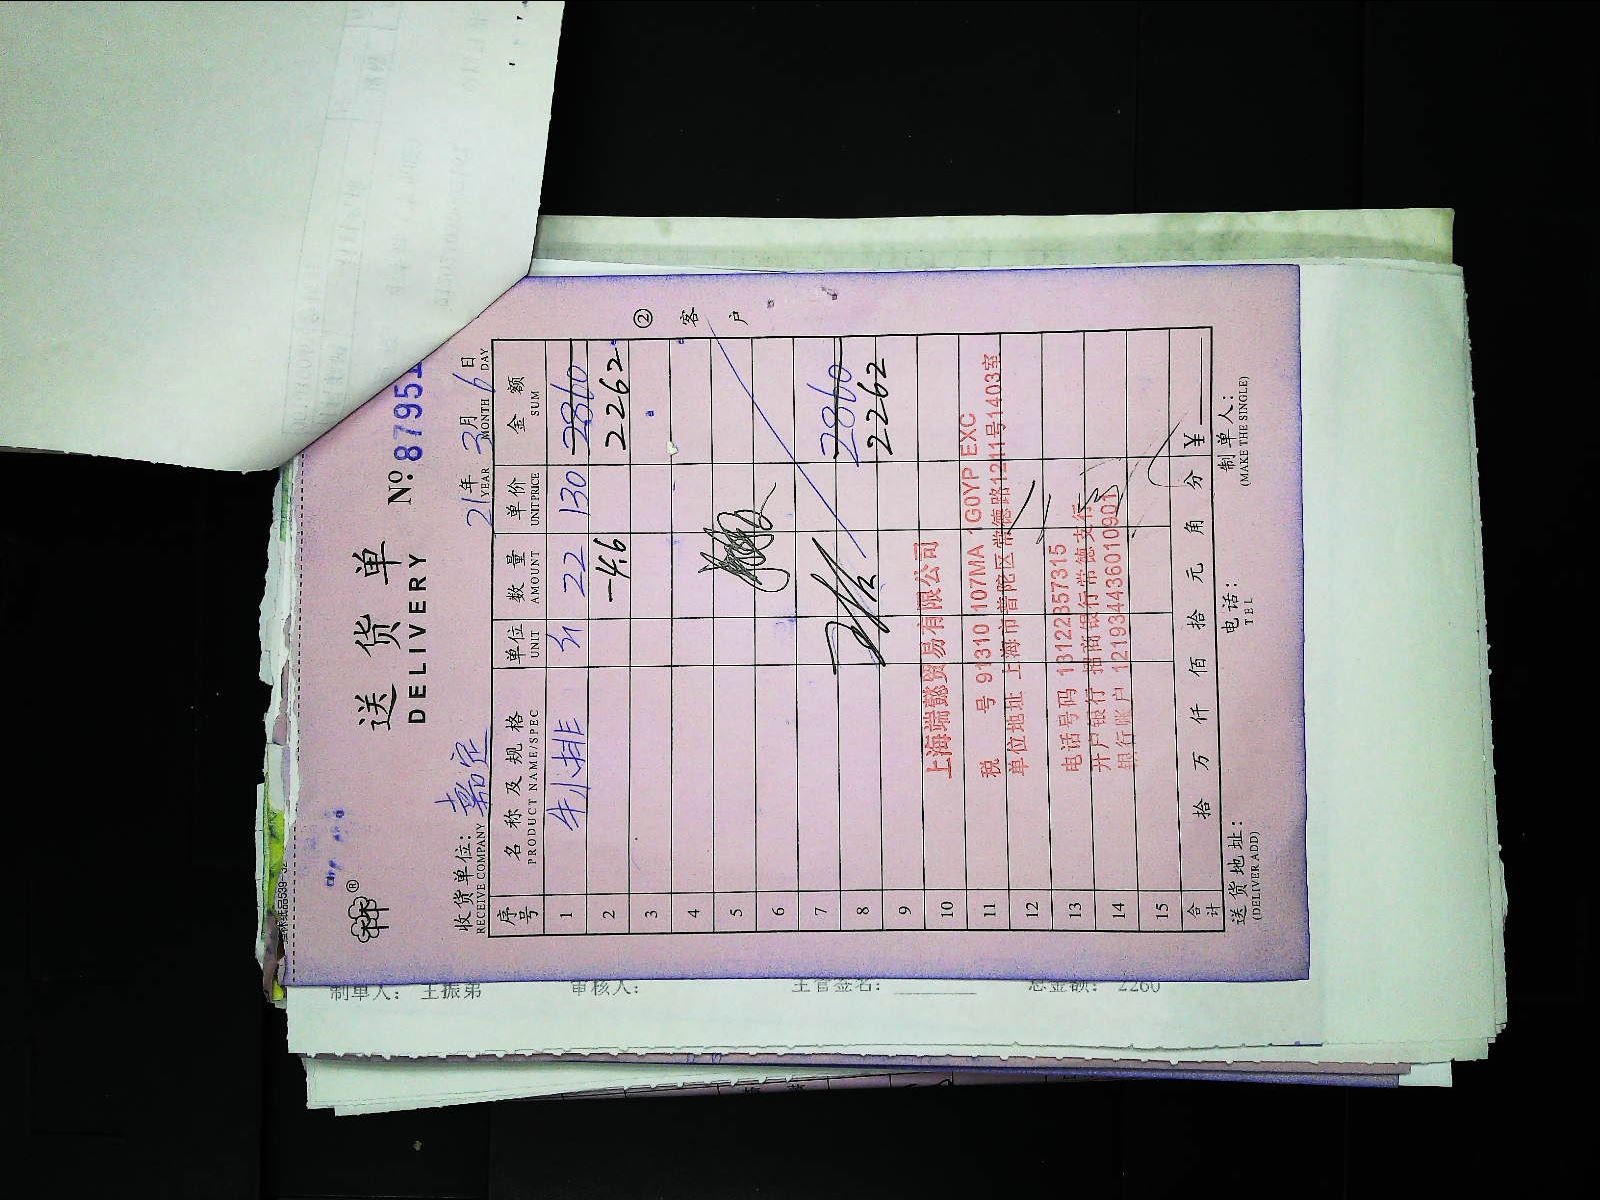 送货单
DELIVERY
№:87951
收货单位: 嘉定
RECEIVE COMPANY
21年 3月 6日
YEAR MONTH DAY
序号 名称及规格 单位 数量 单价 金额
PRODUCT NAME/SPEC UNIT AMOUNT UNIT PRICE SUM
1 牛小排 22 130 2860
2 -4.6 2262
3
4
5
6
7 2860
8 2262
9
10
11
12
13
14
15
② 客户
上海端懿贸易有限公司
税 号 91310 107MA 1G0YP EXC
单位地址 上海市普陀区常德路1211号1403室
电话号码 13122857315
开户银行 招商银行常德支行
银行账户 121934436010901
合计 拾 万 仟 佰 拾 元 角 分 ¥
送货地址: 电话: 制单人:
(DELIVER ADD) TEL (MAKE THE SINGLE)
制单人: 王振弟 审核人: 主管签名: 总金额: 2260